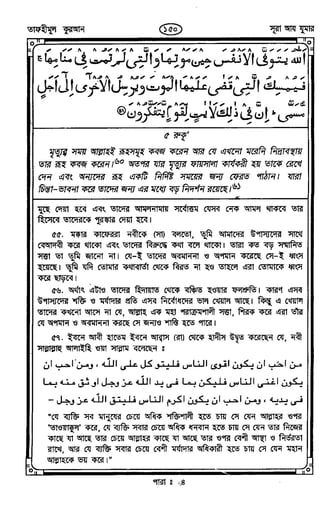 তাফহীমুল কুরআন
১৫০
সূরা আয যুমার
اَللّٰهُ يَتَوَفَّى الْاَنْفُسَ حِيْنَ مَوْتِهَا وَالَّتِيْ لَمْ تَمُتْ فِيْ مَنَامِهَا ۚ
فَيُمْسِكُ الَّتِيْ قَضٰى عَلَيْهَا الْمَوْتَ وَيُرْسِلُ الْاُخْرٰٓى اِلٰٓى اَجَلٍ
مُّسَمًّى ؕ اِنَّ فِيْ ذٰلِكَ لَاٰيٰتٍ لِّقَوْمٍ يَّتَفَكَّرُوْنَ ﴿۴۲﴾
৫ রুকূ'
মৃত্যুর সময় আল্লাহই রূহসমূহ কবজ করেন আর যে এখনো মরেনি নিদ্রাবস্থায়
তার রূহ কবজ করেন।৬০ অতপর যার মৃত্যুর ফায়সালা কার্যকরী হয় তাকে রেখে
দেন এবং অন্যদের রূহ একটি নির্দিষ্ট সময়ের জন্য ফেরত পাঠান। যারা
চিন্তা-ভাবনা করে তাদের জন্য এর মধ্যে বড় নিদর্শন রয়েছে।৬১
মুছে দেয়া হবে এবং তাদের আমলনামায় সর্বোত্তম যেসব নেক আমল থাকবে তার
হিসেবে তাদেরকে পুরস্কার দেয়া হবে।
৫৫. মক্কার কাফেররা নবীকে (সা) বলতো, তুমি আমাদের উপাস্যদের সাথে
বেআদবী করে থাকো এবং তাদের বিরুদ্ধে কথা বলে থাকো। তারা কত বড় সম্মানিত
সত্তা তা তুমি জানো না। যে-ই তাদের অবমাননা ও অপমান করেছে সে-ই ধ্বংস
হয়েছে। তুমি যদি তোমার কথাবার্তা থেকে বিরত না হও তাহলে এরা তোমাকে ধ্বংস
করে ছাড়বে।
৫৬. অর্থাৎ এটাও তাদের হিদায়াত থেকে বঞ্চিত হওয়ার ফলশ্রুতি। কারণ এসব
উপাস্যদের শক্তি ও মর্যাদার প্রতি এসব নির্বোধদের ভাল খেয়াল আছে। কিন্তু এ খেয়াল
তাদের কখনো আসে না যে, আল্লাহ এক মহা পরাক্রমশালী সত্তা, শিরক করে এরা তাঁর
যে অপমান ও অবমাননা করছে সে জন্যও শাস্তি হতে পারে।
৫৭. ইবনে আবী হাতেম ইবনে আব্বাস (রা) থেকে হাদীস উদ্ধৃত করেছেন যে, নবী
সাল্লাল্লাহু আলাইহি ওয়া সাল্লাম বলেছেন :
من احب ان يكون اقوى الناس فليتوكل على الله ، ومن احب ان
يكون اغنى الناس فليكن بما فى يد الله عز وجل اوثق منه بما
فى يديه ، ومن احب ان يكون اكرم الناس فليتق الله عز وجل -
"যে ব্যক্তি সব মানুষের চেয়ে অধিক শক্তিশালী হতে চায় সে যেন আল্লাহর ওপর
'তাওয়াক্কুল' করে, যে ব্যক্তি সবার চেয়ে অধিক ধনবান হতে চায় সে যেন তার নিজের
কাছে যা আছে তার চেয়ে আল্লাহর কাছে যা আছে তার ওপর বেশী আস্থা ও নির্ভরতা
রাখে, আর যে ব্যক্তি সবার চেয়ে বেশী মর্যাদার অধিকারী হতে চায় সে যেন মহান
আল্লাহকে ভয় করে।"
পারা : ২৪